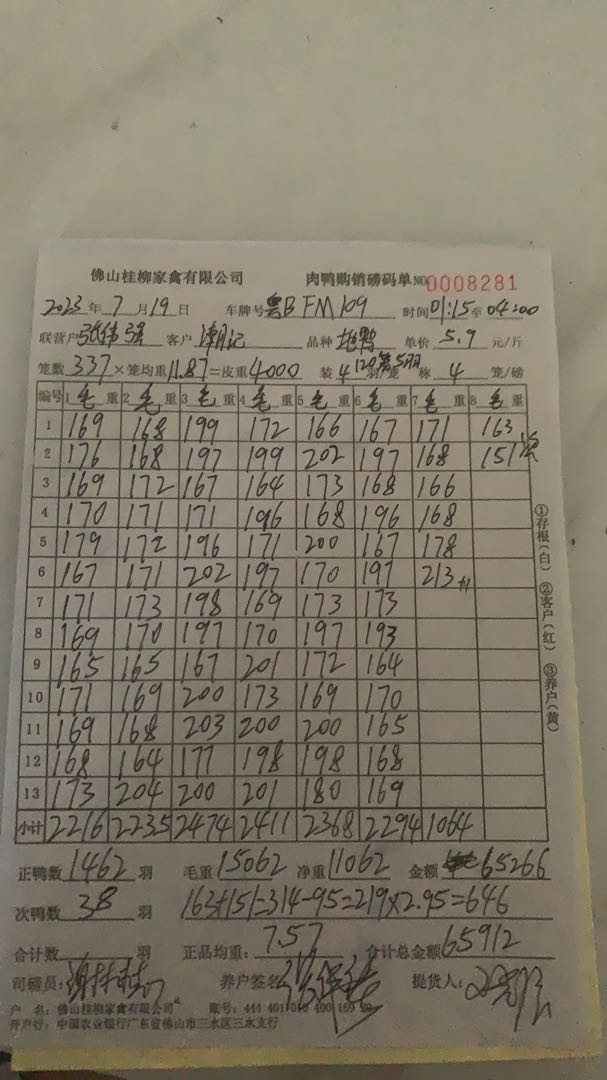 佛山桂柳家禽有限公司 肉鸭购销磅码单 NO 0008281
2023年7月19日 车牌号 粤B FM109 时间 01:15至04:00
联营户 张伟强 客户 品种 单价 5.9 元/斤
笼数 337×笼均重 11.87=皮重 4000 装 4 羽/笼 称 4 笼/磅
编号 1 毛 重 2 毛 重 3 毛 重 4 毛 重 5 毛 重 6 毛 重 7 毛 重 8 毛 重
1 169 168 199 172 166 167 171 163
2 176 168 197 199 202 197 168 151
3 169 172 167 164 173 168 166
4 170 171 171 196 168 196 168
5 179 172 196 171 200 167 178
6 167 171 202 197 170 197 213
7 171 173 198 169 173 173
8 169 170 197 170 197 193
9 165 165 167 201 172 164
10 171 169 200 173 169 170
11 169 168 203 200 200 165
12 168 164 177 198 198 168
13 173 204 200 201 180 169
小计 2216 2235 2474 2411 2368 2294 1064
正鸭数 1462 羽 毛重 15062 净重 11062 金额 65266
次鸭数 38 羽 163+151=314-95=219×2.95=646
合计数 羽 正品均重: 7.57 合计总金额 65912
司磅员: 养户签名 提货人:
户 名: 佛山桂柳家禽有限公司 账号: 444 401
开户行: 中国农业银行广东省佛山市三水区三水支行
①存根(白) ②客户(红) ③养户(黄)